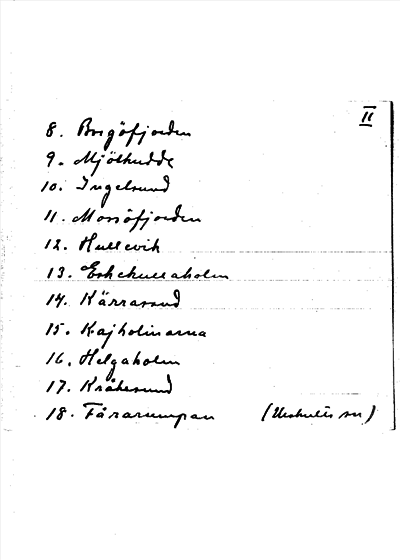 II
8. Borgöfjorden
9. Mjölkudde
10. Ingelsund
11. Morsöfjorden
12. Hullevik
13. Eskekullaholm
14. Kärrasund
15. Kajholmarna
16. Helgaholm
17. Kråkesund
18. Fårarumpan ( sn)